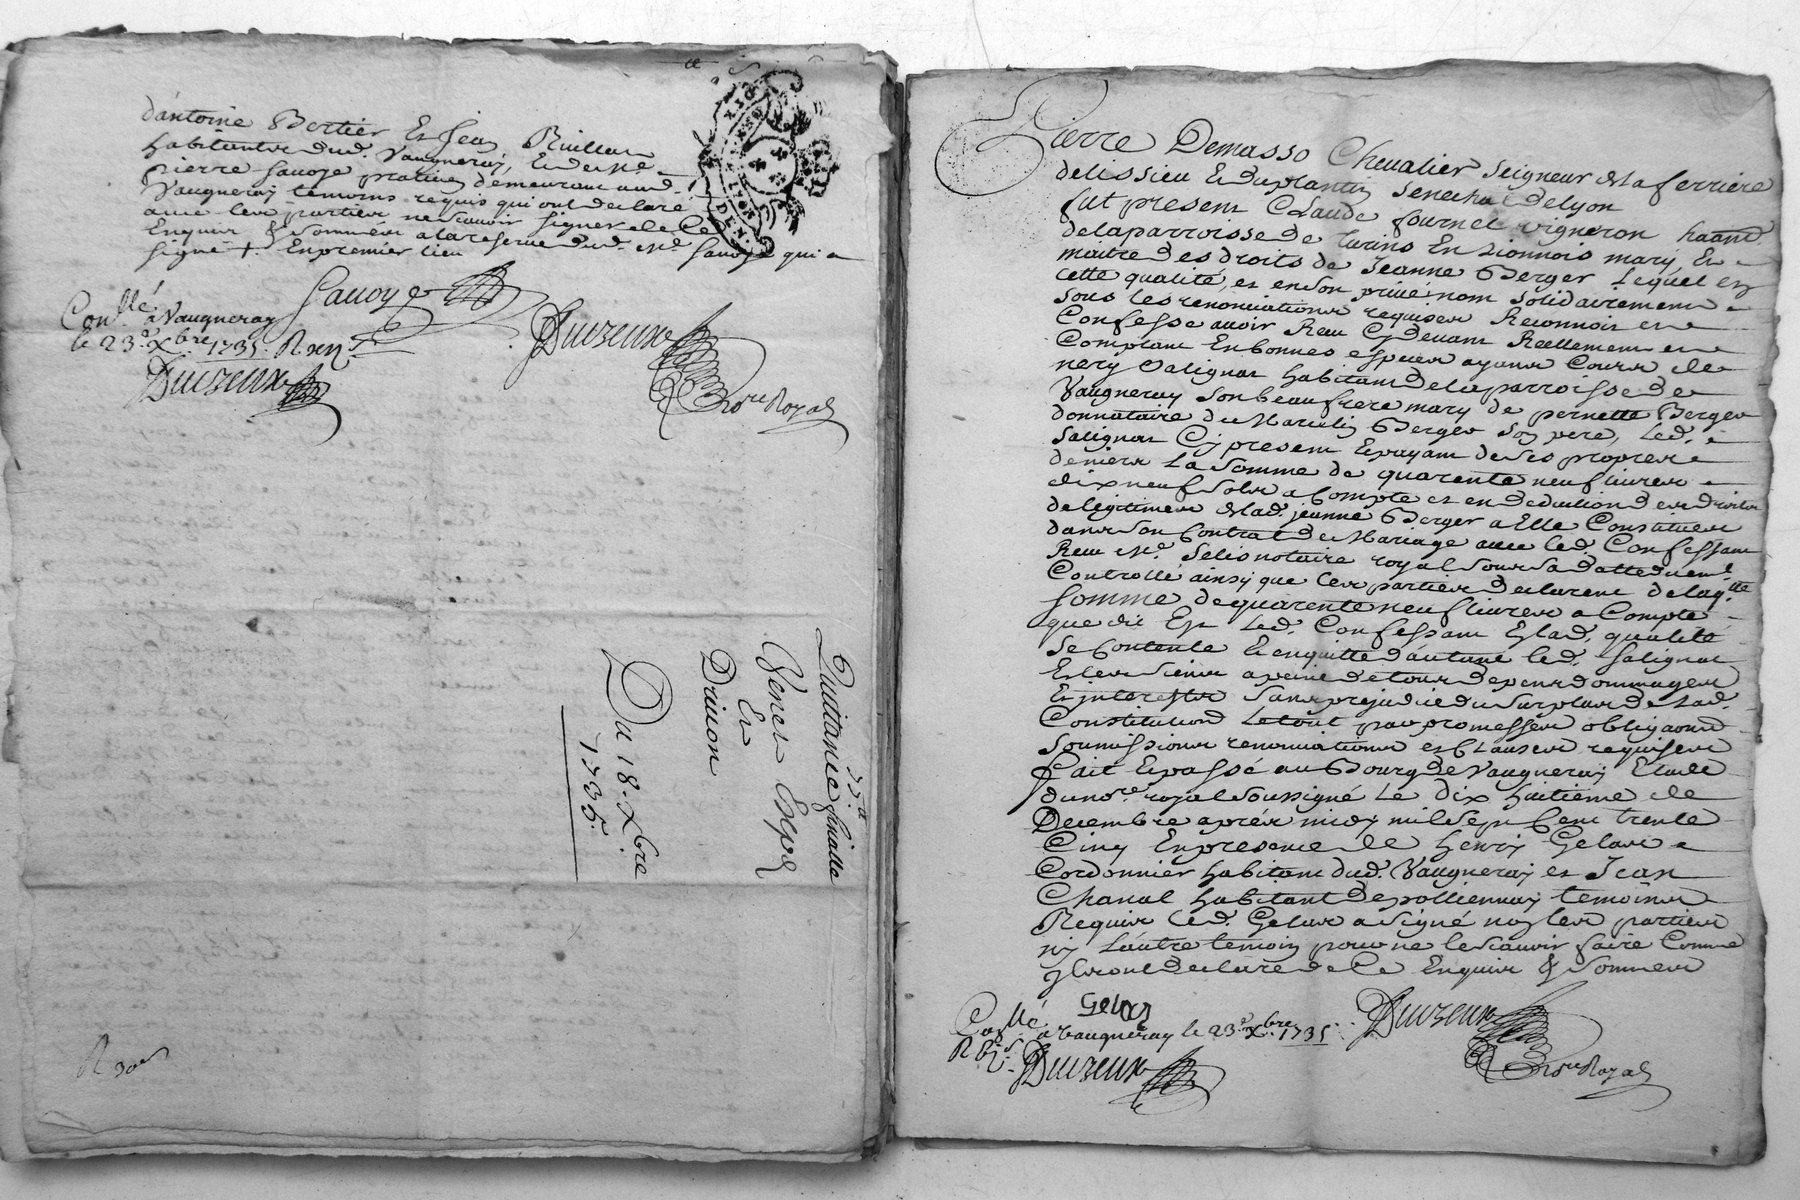 d'antoine Bertier Et Jean Riuillon
habitants dud. Vaugneray, Et de Me
pierre Sauoye praticien demeurant aud.
Vaugneray temoins requis qui ont declaré
auec les parties ne scauoir signer de Ce
Enquis & sommés a la reserue dud. Me Sauoye qui a
signé +. En premier lieu
Sauoye
Duvzeux
No.re Royal
Con.llé a Vaugneray
le 23.e Xbre 1735. R
Duvzeux
Quittance finalle
Genet Espe
Et
Driuon
Du 18. Xbre
1735.
R 30
Pierre Demasso Cheualier Seigneur de la ferriere
de lissieu Et du plantin Senechal de Lyon
fut present Claude fournel vigneron haant
de la parroisse de turins En Lionnois mary Et
maitre des droits de Jeanne Berger Lequel en
cette qualité, et en son priué nom solidairement
sous les renonciations requises Reconnoit et
Confesse auoir Reçu Cy deuant Reellement et
Comptant En bonnes especes ayant Cours de
nery Salignat habitant de la parroisse de
Vaugneray son beaufrere mary de pernette Berger
donnataire de Marcelin Berger son pere, led.
Salignat Cy present Et payant de ses propres
deniers La somme de quarente neuf liures
dix neuf sols a Compte et en deduction des droits
de legitimes de lad. jeanne Berger a Elle Constitués
dans son Contrat de Mariage auec led. Confessant
Reçu Me. Selis notaire royal sous sa datte duem.t
Controllé ainsy que les parties declarent de laq.tte
somme de quarente neuf liures a Compte
que dit Est Led. Confessant Esd. qualité
se Contente Et enquitte d'autant led. Salignat
Et les siens a peine de tous depens dommages
Et interests sans prejudice du surplus de lad.
Constitution Le tout par promesses obligaons
soumissions renonciations et Clauses requises
fait Et passé au Bourg de Vaugneray Etude
du nore. royal soussigné Le Dix huitieme de
Decembre aprés midy mil sept Cent trente
Cinq En presence de Henry Gelas
Cordonnier habitant dud. Vaugneray et Jean
Chanal habitant de pollionnay temoins
Requis led. Gelas a signé non les parties
ny L'autre temoin pour ne le scauoir faire Comme
ils ont declaré de Ce Enquis & sommés
Gelas
Con.llé a Vaugneray le 23.e Xbre 1735.
Duvzeux
Duvzeux
No.re Royal